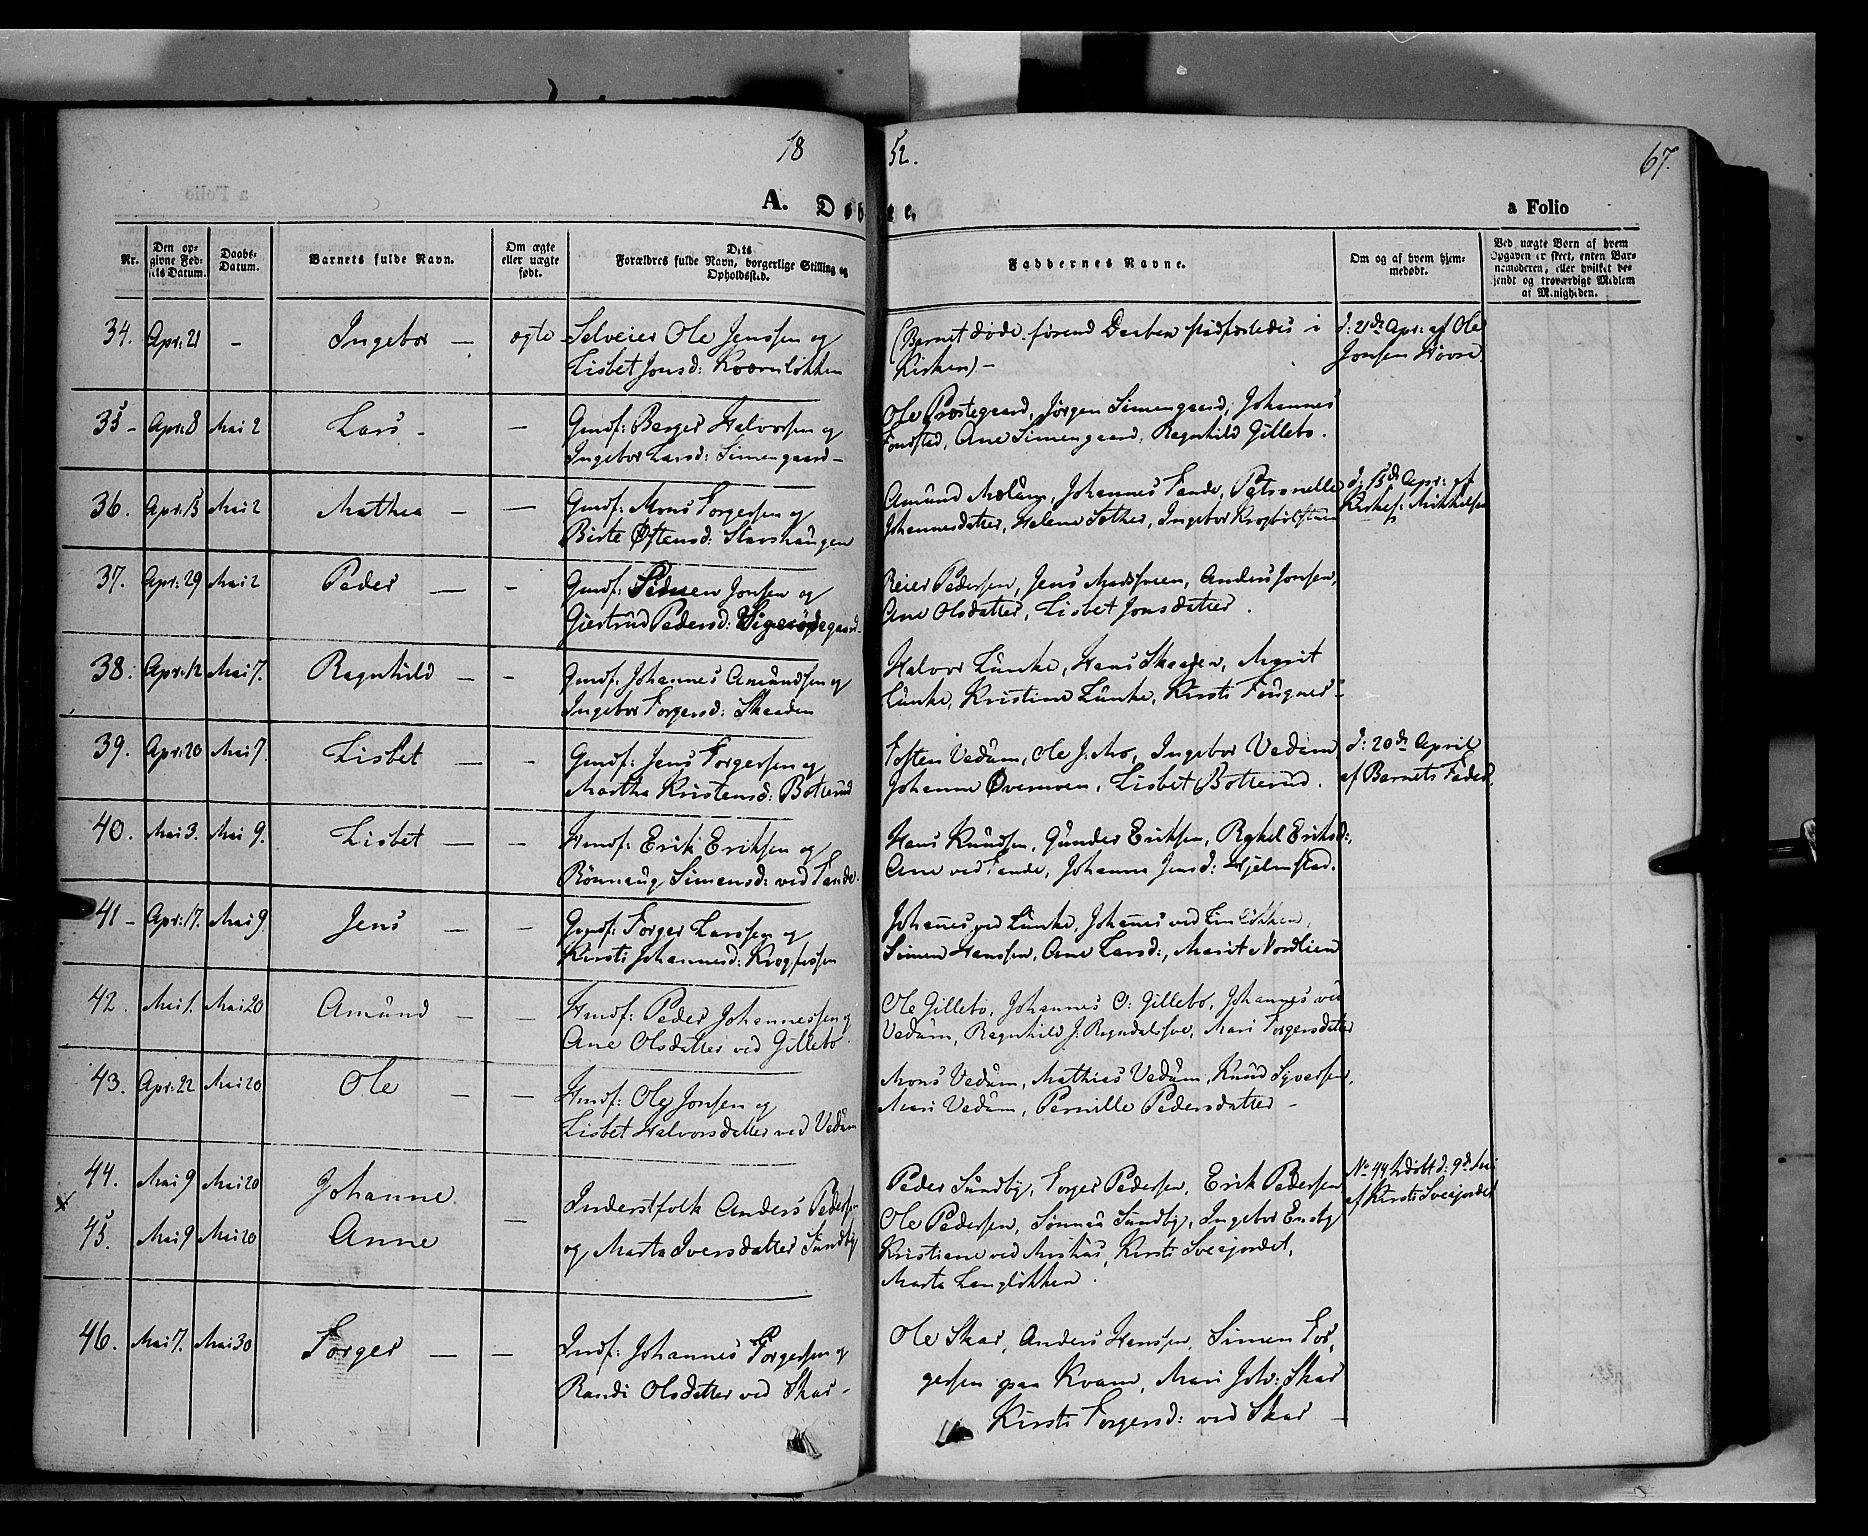 18
52.
67.
A. Døbte.
a Folio
Nr.
Den opgivne Fødsels Datum.
Daabs-Datum.
Barnets fulde Navn.
Om ægte eller uægte født.
Dets Forældres fulde Navn, borgerlige Stilling og Opholdssted.
Faddernes Navne.
Om og af hvem hjemmedøbt.
Ved uægte Børn af hvem Opgaven er skeet, enten Barnemoderen, eller hvilket bekjendt og troværdigt Medlem af Menigheden.
34. Apr: 21 - Ingebor - ægte Selveier Ole Jenssen og
Lisbet Jonsd: Kværnløkken
(Barnet døde førend Daaben stadfæstedes i
Kirken) -
d: 21de Apr: af Ole
Jonsen
35 - Apr: 8 Mai 2 Lars - - Gmdf: Berger Halvorsen og
Ingebor Larsd: Simengaard -
Ole Prostegaard, Jørgen Simengaard, Johannes
Fonstad, Ane Simengaard, Ragnhild Gillebo.
36. Apr: 15 Mai 2 Mathea - - Gmdf: Mons Torgersen og
Birte Østensd: Skarshaugen
Amund Johannes Tande, Petronelle
Johannesdatter, Helene Sother, Ingebor
d: 15de Apr: af
Kirkes: Mikkelsen
37. Apr: 29 Mai 2 Peder - - Gmdf: Simen Jonsen og
Giertrud Pedersd:
Reier Pedersen, Jens Anders Jonsen,
Ane Olsdatter, Lisbet Jonsdatter.
38. Apr: 12 Mai 7. Ragnhild - - Gmdf: Johannes Amundsen og
Ingebor Torgersd: Skaaden
Halvor Lunke, Hans Skaaden, Marit
Lunke, Kristine Lunke, Kirsti Fougner -
39. Apr: 20 Mai 7. Lisbet - - Gmdf: Jens Torgersen og
Martha Kristensd: Botterud
Tosten Vedum, Ole J. Mo, Ingebor Vedum
Johanne Øvermoen, Lisbet Botterud.
d: 20de April
af Barnets Fader
40. Mai 3. Mai 9. Lisbet - - Hmdf: Erik Eriksen og
Rønnaug Simensd: ved Tande.
Hans Knudsen, Gunder Eriksen, Rakel Eriksd:,
Ane ved Tande, Johanne Jensd: Hjelmstad.
41 - Apr: 17. Mai 9 Jens - - Gmdf: Torger Larssen og
Kirsti Johannesd: Krogfossen
Johannes ved Lunke, Johannes ved
Simen Hanssen, Ane Larsd:, Marit Nordlien
42. Mai 1. Mai 20 Amund - - Hmdf: Peder Johannessen og
Ane Olsdatter ved Gillebo.
Ole Gillebo, Johannes O: Gillebo, Johannes ved
Vedum, Ragnhild J. Mari Torgersdatter
43. Apr: 22 Mai 20 Ole - - Hmdf: Ole Jonsen og
Lisbet Halvorsdatter ved Vedum
Mons Vedum, Mathias Vedum, Knud Syversen,
Mari Vedum, Pernille Pedersdatter -
44. Mai 9 Mai 20 Johanne
x
45. Mai 9 Mai 20 Anne - Inderstfolk Anders Pedersen
og Marta Iversdatter Sundby
Peder Sundby, Torger Pedersen, Erik Pedersen
Ole Pedersen, Sønnev Sundby, Ingebor Ensby
Kristiane ved Kirsti Sveejordet,
Marta Langløkken.
No 44 hdøbt d: 9de
af Kirsti Sveejordet
46. Mai 7. Mai 30 Torger - - Indf: Johannes Torgersen og
Randi Olsdatter ved Skar -
Ole Skar, Anders Hanssen, Simen Tor-
gersen paa Kvam, Mari Joh: Skar
Kirsti Torgersd: ved Skar -